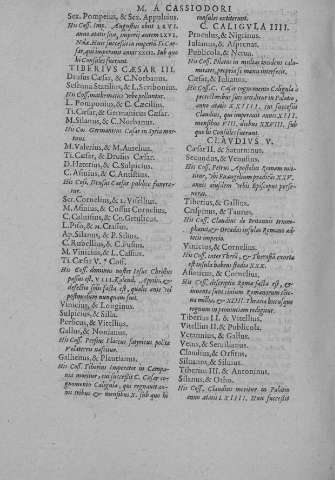 M. A CASSIODORI
Sex. Pompeius, & Sex. Appuleius.
His Coss. Imp. Augustus obiit LXVI.
anno aetatis suae, imperii autem LVI.
Nolae. Huic successit in imperio Ti Caesar,
qui imperavit annis XXIII. sub quo
hi Consules fuerunt.
TIBERIUS CAESAR III.
Drusus Caesar, & C. Norbanus.
Sisenna Statilius, & L. Scribonius.
His Coss. mathematici Urbe pelluntur.
L. Pomponius, & C. Caecilius.
Ti. Caesar, & Germanicus Caesar.
M. Silanus, & C. Norbanus.
His Coss. Germanicus Caesar in Syria moritur.
M. Valerius, & M. Aurelius.
Ti. Caesar, & Drusus Caesar.
D. Haterius, & C. Sulpicius.
C. Asinius, & C. Antistius.
His Coss. Drusus Caesar publice funeratur.
Ser. Cornelius, & L. Visellius.
M. Asinius, & Cossus Cornelius.
C. Calvisius, & Cn. Getulicus.
L. Piso, & M. Crassus.
Ap. Silanus, & P. Silius.
C. Rubellius, & C. Fusius.
M. Vinicius, & L. Cassius.
Ti. Caesar V. Coss.
His Coss. dominus noster Iesus Christus
passus est, VIII. Kalend. Aprilis, &
defectio solis facta est, qualis ante vel
postmodum nunquam fuit.
Vinicius, & Longinus.
Sulpicius, & Silla.
Persicus, & Vitellius.
Gallus, & Nonianus.
His Coss. Persius Flaccus satyricus poëta
Volaterris nascitur.
Gallienus, & Plautianus.
His Coss. Tiberius imperator in Campania
moritur, cui successit C. Caesar cognomento
Caligula, qui regnavit annis
tribus & mensibus X. sub quo hi
consules extiterunt.
C. CALIGULA IIII.
Proculus, & Nigrinus.
Iulianus, & Asprenas.
Publicola, & Nerva.
His Coss. Pilatus in multas incidens calamitates,
propria se manu interfecit.
Caesar, & Iulianus.
His Coss. C. Caesar cognomento Caligula à
protectoribus suis occiditur in Palatio,
anno aetatis XXVIIII, cui successit
Claudius, qui imperavit annis XIII.
mensibus VIII, diebus XXVIII. sub
quo hi Consules fuerunt.
CLAUDIUS V.
Caesar II. & Saturninus.
Secundus, & Venustus.
His Coss. Petrus Apostolus Romam mittitur,
ubi Evangelium praedicans XXV.
annis eiusdem Urbis Episcopus perseverat.
Tiberius, & Gallus.
Crispinus, & Taurus.
His Coss. Claudius de Britannis triumphavit,
& Orcadas insulas Romano adiecit
imperio.
Vinicius, & Cornelius.
His Coss. inter Theram, & Therasiam exorta
est insula habens stadia XXX.
Asiaticus, & Cornelius.
His Coss. descriptio Romae facta est, &
Tiberius II. & Vitellius.
Vitellius II. & Publicola.
Verannius, & Gallus.
Vetus, & Servilianus.
Claudius, & Orfitus.
Silvanus, & Silvius.
Tiberius III. & Antoninus.
Silanus, & Otho.
His Coss. Claudius moritur in Palatio
anno aetatis LXIIII. Huic successit